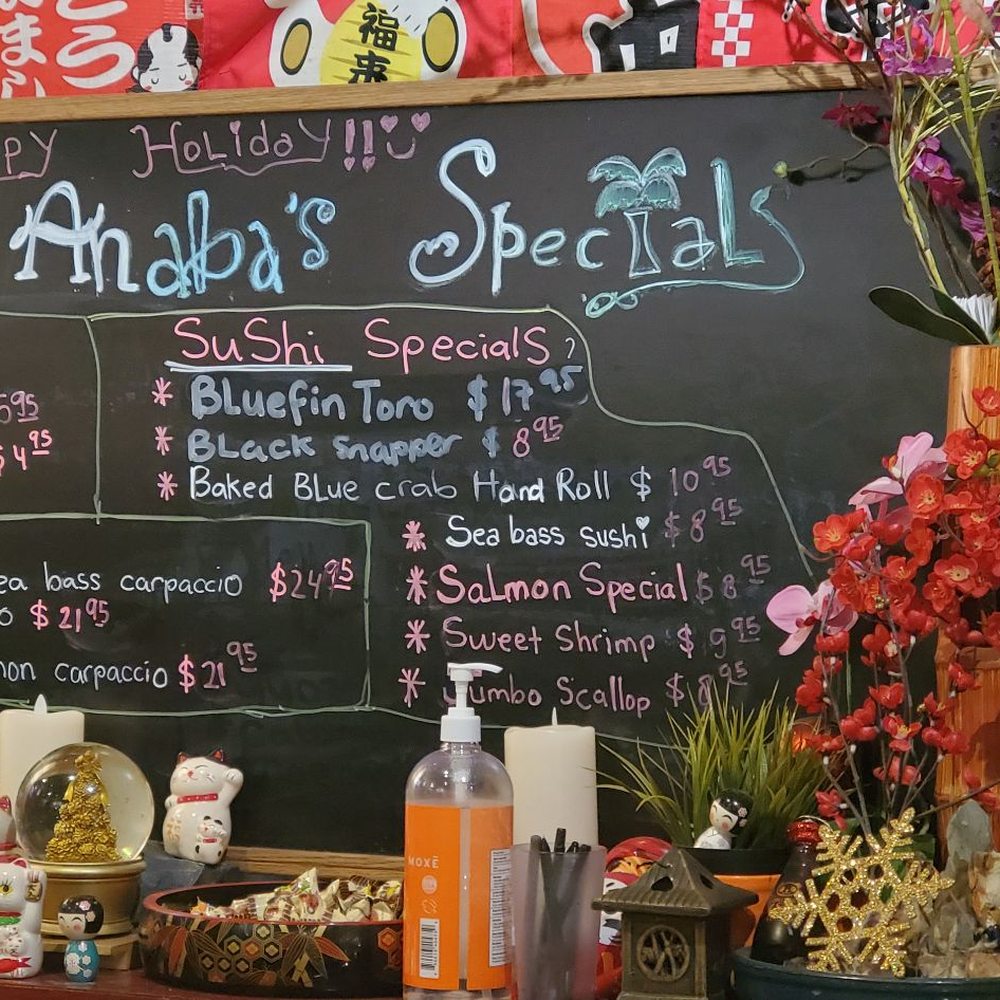 福
来
PY HOLIDAY!!
Anaba's Specials
SuShi Specials
* Bluefin Toro $17.95
* Black Snapper $8.95
* Baked Blue crab Hand Roll $10.95
* Sea bass sushi $8.95
* Salmon Special $8.95
* Sweet Shrimp $9.95
* Jumbo Scallop $8.95
5.95
$4.95
ea bass carpaccio $24.95
o $21.95
mon carpaccio $21.95
MOXĒ